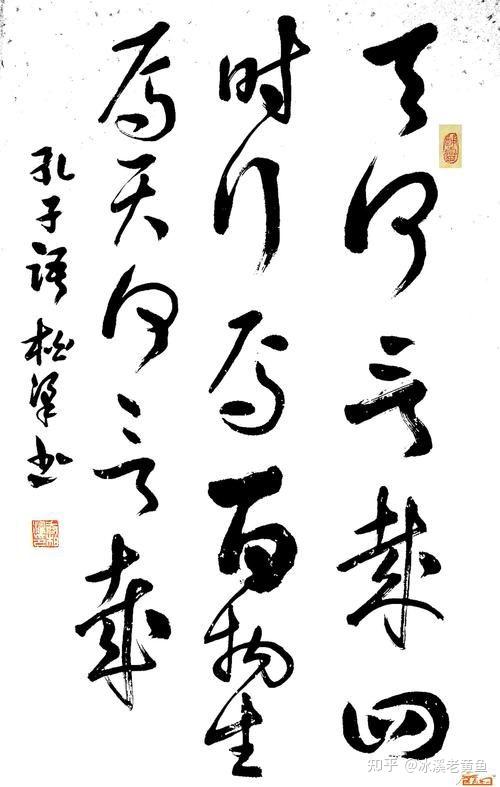 天何言哉四
时行焉百物生
焉天何言哉
孔子語 松梁书
知乎 @冰溪老黄鱼